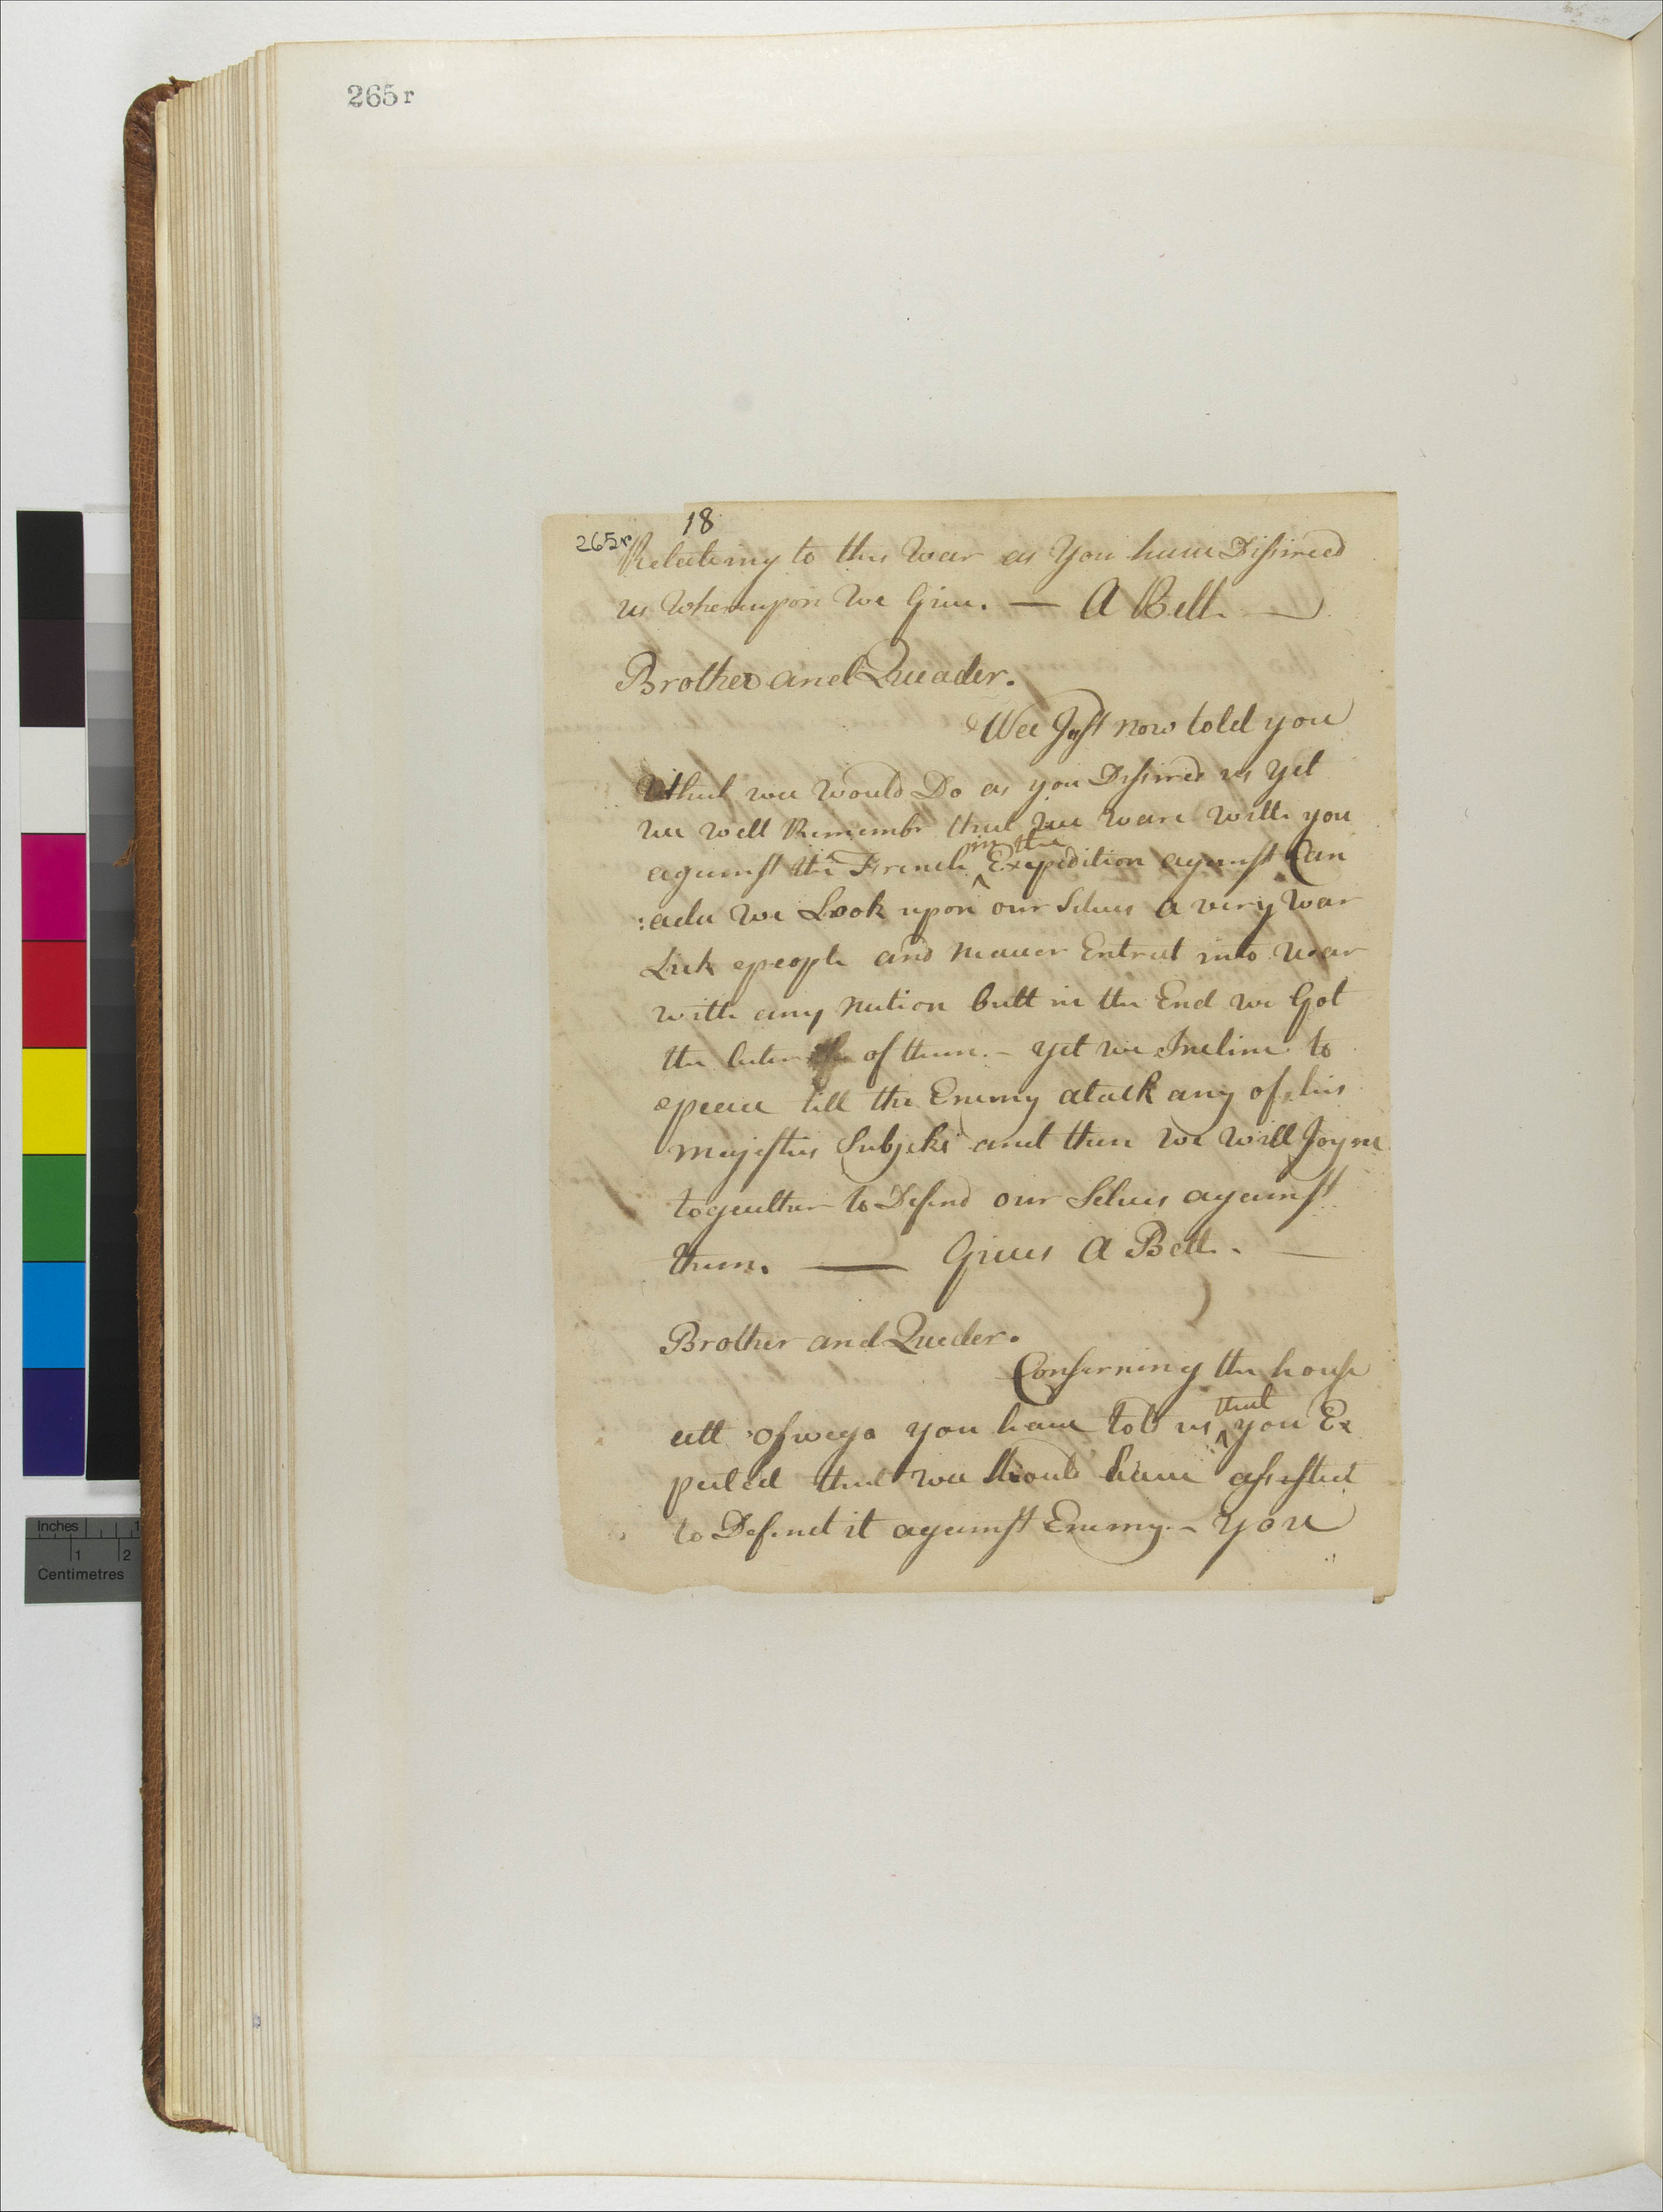 265r
18
265r
Relateing to this War as You haue Dissireed
us Whereupon We Giue. — A Bellt —
Brother and Queader.
Wee Just now told you
that wee Would Do as you Dissired us Yet
we well Rememb that we ware with you
in the
against the French ^ Exepedition against Can
:ada We Look upon our Selues a very War
Lick epeople and neauer Entred into War
with any nation butt in the End we Got
the beter of them. – yet we Incline to
epeace till the Enemy atack any of his
majesties Subjeks and then we will Joyne
togeather to Defend our Selues against
them. — Giues A Bellt. —
Brother and Queder.
Conserning the house
that
att Oswego you haue told us ^ you Ex
pected that wee should haue assisted
to Defend it against Enemy. – You
Inches 1
1 2
Centimetres